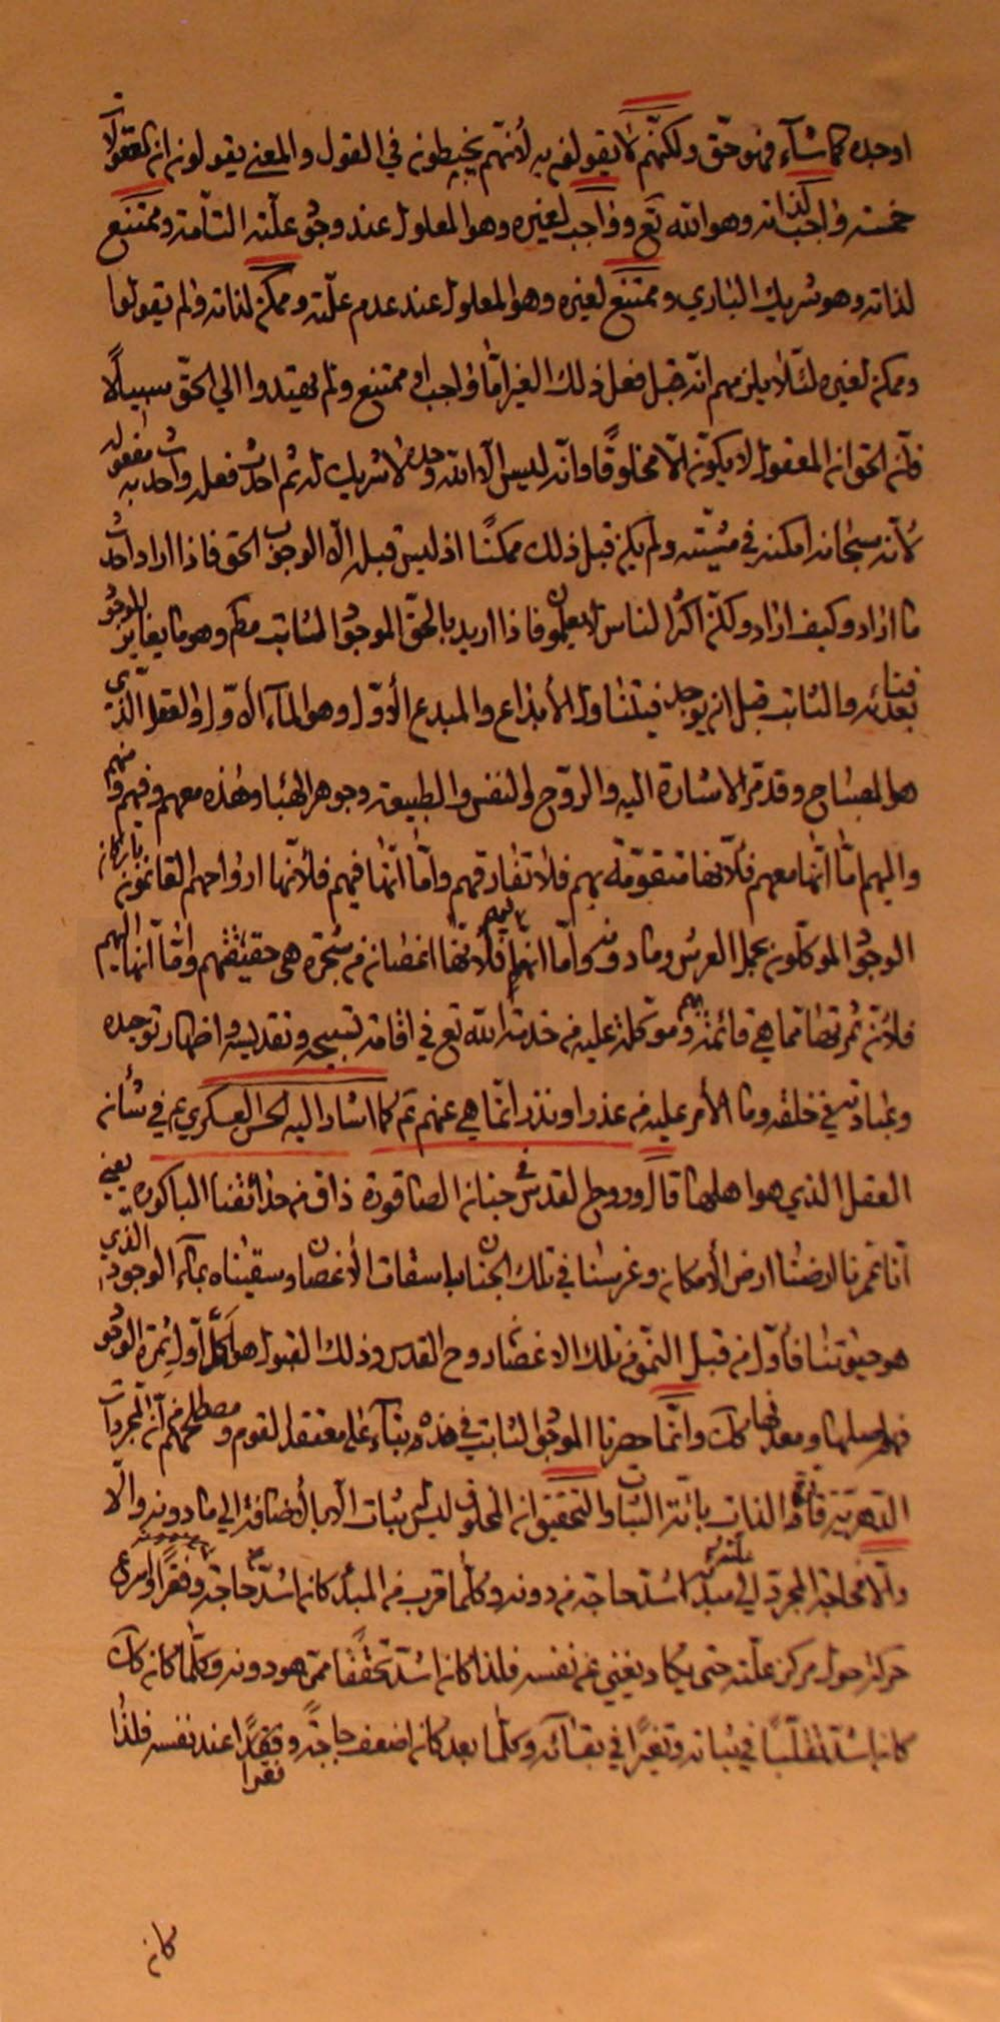 اوجده كما شآء فهو حقّ ولكنّهم لا يقولون به لأنّهم يخبطون في القول والمعنى يقولون ان المعقولات
خمسة واجب لذاته وهو الله تع وواجب لغيره وهو المعلول عند وجود علّته التآمة وممتنع
لذاته وهو شريك الباري وممتنع لغيره وهو المعلول عند عدم علّته وممكن لذاته ولم يقولوا
وممكن لغيره لئلّا يلزمهم انّه قبل فعل ذلك الغير امّا واجب او ممتنع ولم يهتدوا الي الحقّ سبيلًا
فانّ الحق انّ المعقول لا يكون الّا مخلوقًا وانّه ليس الّا الله وحده لا شريك له ثم احدث فعله واحدث به مفعوله
لأنّه سبحانه امكنه في مشيّته ولم يكن قبل ذلك ممكنًا اذ ليس قبله الّا الوجوب الحق فاذا اراد احدث
ما اراد وكيف اراد ولكنّ اكثر الناس لا يعلمون فاذا اريد بالحقّ الموجود الثابت مطم وهو ما يغاير الموجود
بعد فنائه والثابت قبل ان يوجد فيتناول الأبداع والمبدع الأوّل وهو المآء الأوّل والعقل الّذي
هو المصباح وقد مرّ الاشارة اليه والروّح والنفس والطبيعة وجوهر الهبا وهذه معهم وفيهم ومنهم
واليهم امّا انّها معهم فلأنّها متقوّمة بهم فلا تفارقهم وامّا انّها فيهم فلأنّها ارواحهم القائمون باركان
الوجود الموكّلون بحمل العرش وما دونه وامّا انّها منهم فلأنّها اغصان من شجرة هي حقيقتهم وامّا انّها اليهم
فلأنّ ثمرتها ممّا هي قائمة به وموكلة عليه من خدمة الله تع في اقامة تسبيحه وتقديسه واظهار توحيده
وعبادته في خلقه وما الأمر عليه من عذر او نذر انّما هي عنهم ثم كما اشار اليه الحسن العسكري ع في شأن
العقل الذي هو اصلها قال وروح القدس في جنان الصاقورة ذاق من حدائقنا الباكورة يعني
انّا عمرنا ارضنا ارض الأمكان وغرسنا في تلك الجنان باسقات الأغصان وسقيناه بمآء الوجود الذي
هو حيوتنا فأوّل من قبل النموّ من تلك الاغصان روح القدس وذلك القبول هو اكل اوّل ثمرة الوجود
فهو اصلها ومعدنها كك وانّما حصرنا الموجود الثابت في هذه بنآء على معتقد القوم ومصطلحهم من انّ المجردات
الدهريّة قارّة الذات بائنة الثبات والتحقيق ان المخلوق ليس بثبات الّا بالأضافة الي ما دونه والّا
والّا فحاجة المجرد الي مبدئه اشد حاجة من دونه وكلّما قرب من المبدأ كان اشدّ حاجة وفقرًا واسرع
حركة حول مركز علّته حتى يكاد يغني عن نفسه فلذا كان اشدّ تحقّقًا ممّن هو دونه وكلّما كان كك
كان اشدّ تقلّبًا في ثباته وتغيّرًا في بقائه وكلّما بعد كان اضعف حاجةً وفقدًا عند نفسه فلذا
فقرا
كان